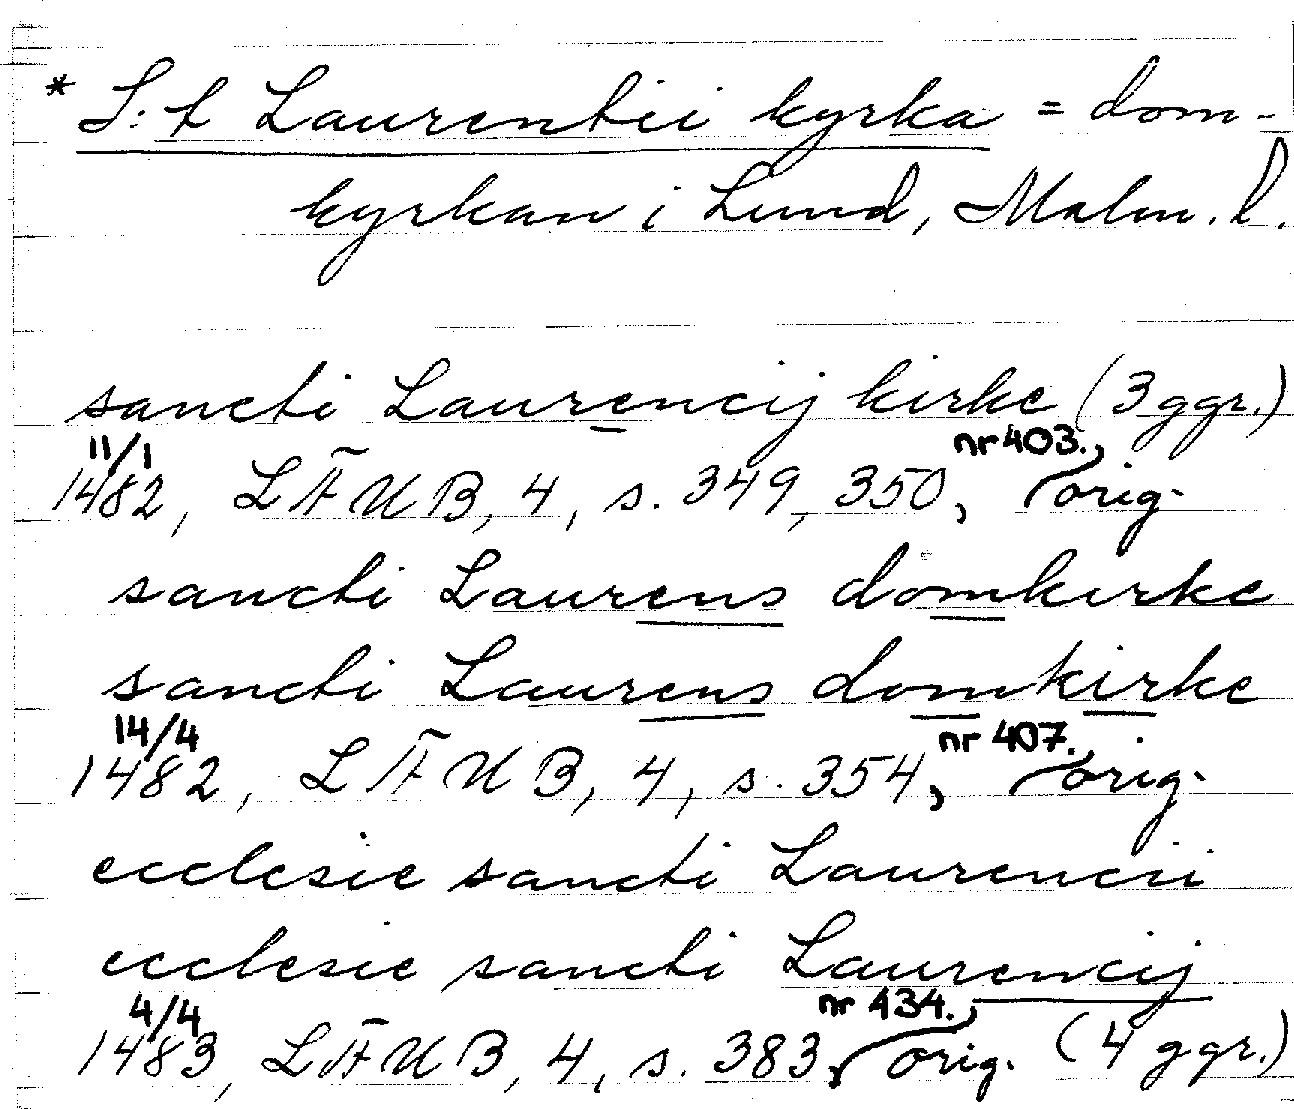 * S:t Laurentii kyrka = dom-
kyrkan i Lund, Malm. l.
sancti Laurencij kirke (3 ggr.)
11/1 nr 403.,
1482, LÄUB, 4, s. 349, 350, orig.
sancti Laurens domkirke
sancti Laurens domkirke
14/4 nr 407.,
1482, LÄUB, 4, s. 354, orig.
ecclesie sancti Laurencii
ecclesie sancti Laurencij
4/4 nr 434.,
1483, LÄUB, 4, s. 383, orig. (4 ggr.)